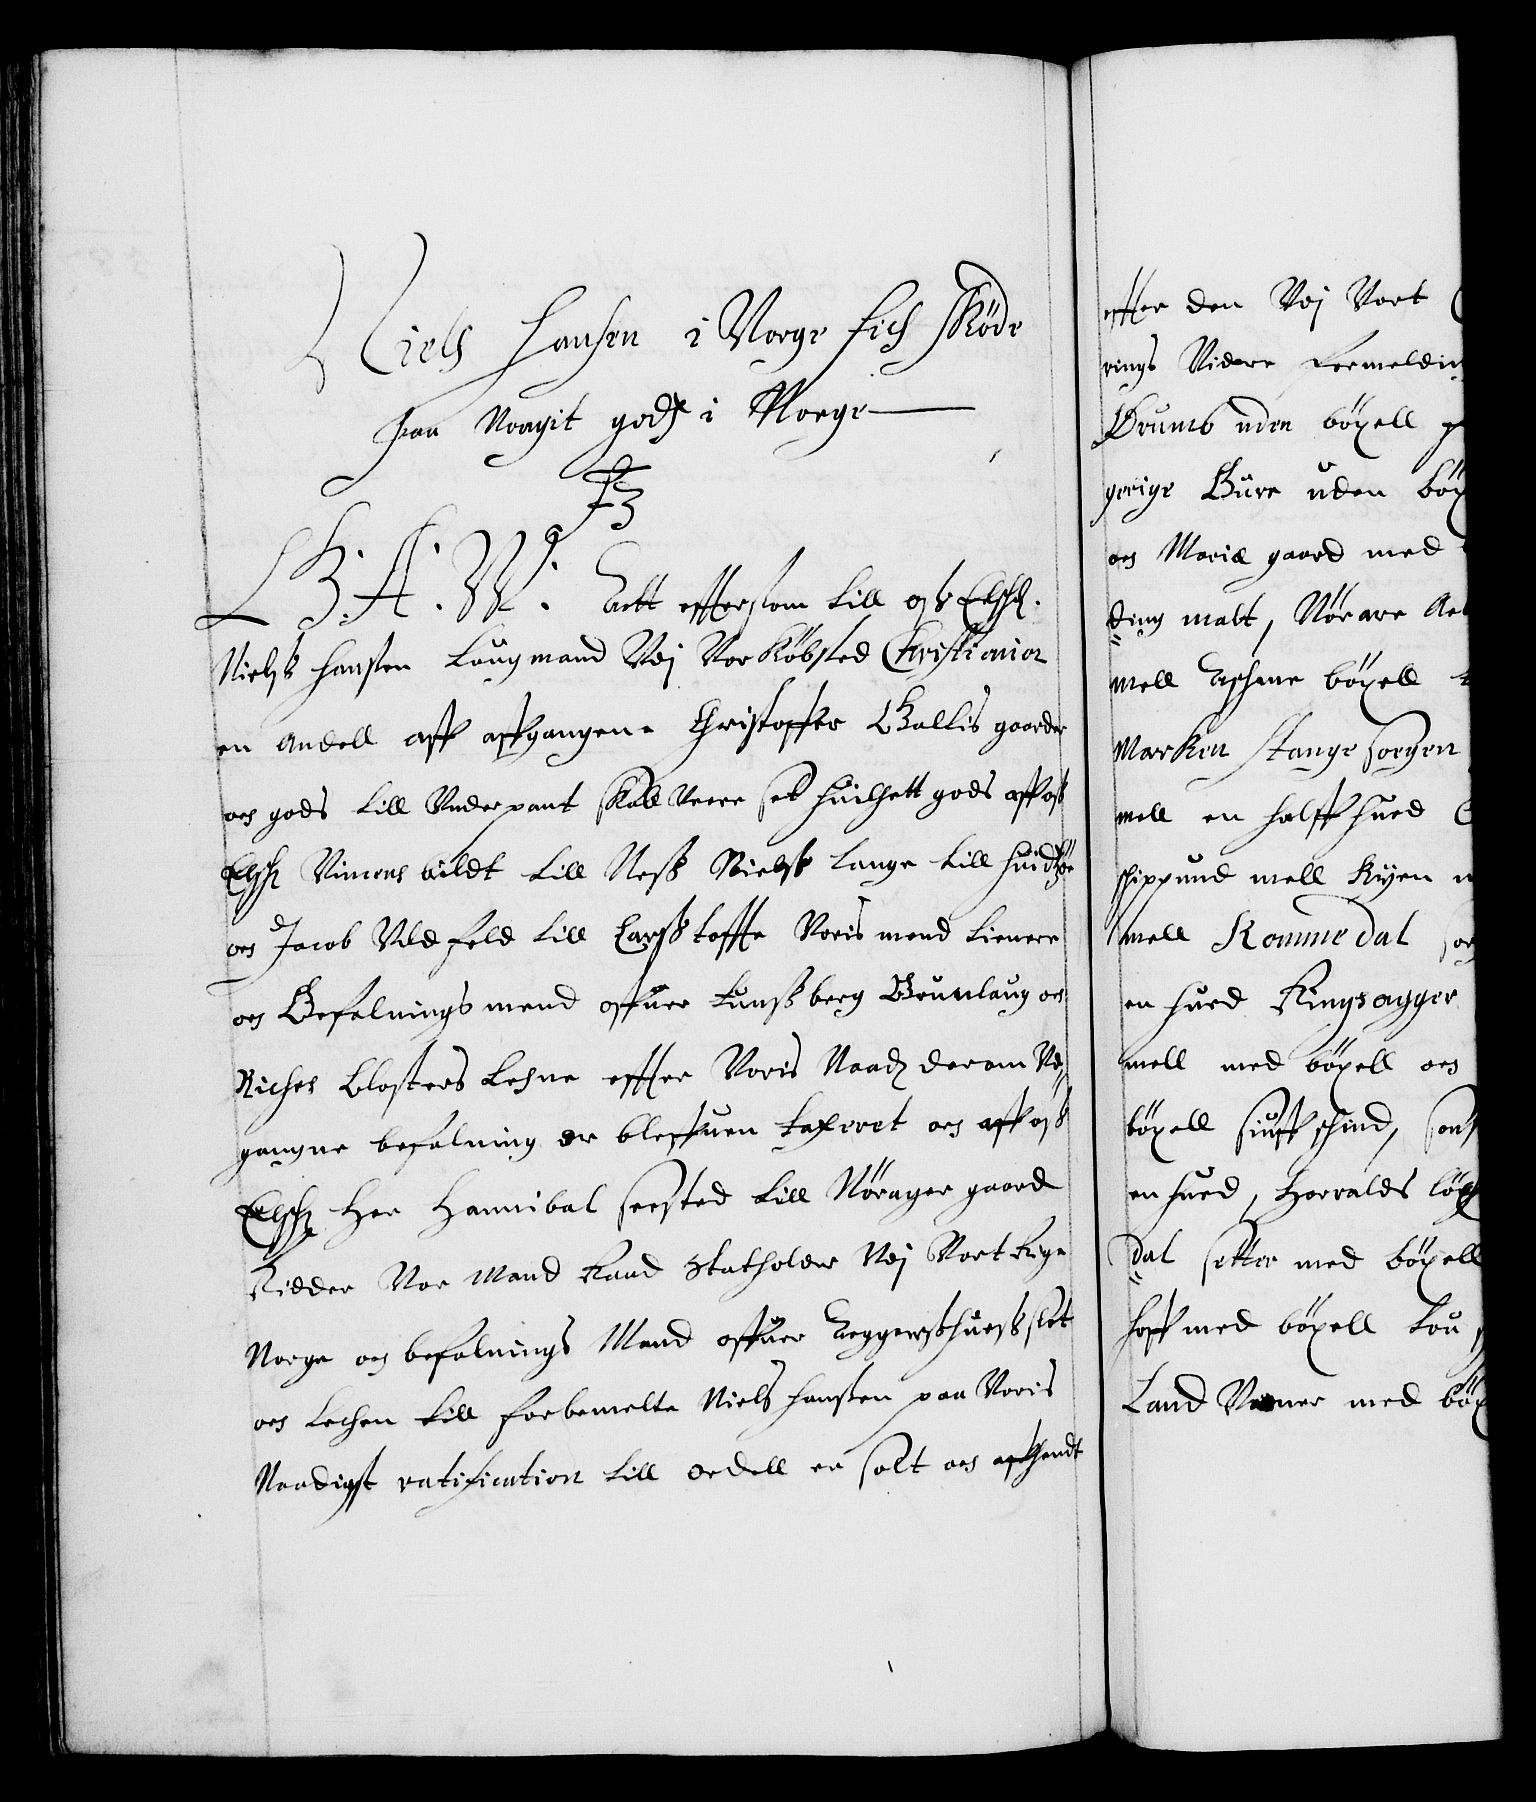 Niels Hansen i Norge fich Skøde
paa Noagit godz i Norge
F3
C. 4. G. A. W. Att effterslom till osz Elsch.
Nielsz Hanszen Laugmand Udj Vor Købsted Christiania
en andell aff affgangene Christoffer Gallis gaarder
och gods till Underpant skall vere sat huilchett gods aff osz
Elsch Vincens bildt till Nesz Nielsz Lange till huidtzøe
och Jacob Uldfeld till Carsztofftte Voris mend tienere
och Befalnings mend offuer Tunszberg Brunlaug och
Riches Closters Lehne effter Voris Naadz derom Ud-
gangne befalning er bleffuen taxeret och aff osz
Elsch Her Hannibal Seested till Nøragergaard
Ridder Vor Mand Raad Statholder Udj Vort Rige
Norge och befalnings Mand offuer Aggerszhuesz slot
och Lehen till forbemelte Niels Hanszen paa Voris
Naadigst ratification till ordell er solt och affhendt
effter den Udj Vort
rings Videre formeldin
Brunlo uden bøxell
gerige Bure uden bøx
och Mariæ gaard med
ding malt, Nørare
mell Aschme bøxell
Marken Stange sorgen
mell en halff hued
schippund mell Ryen
mell Rommedal
en hued Ringsagger
mell med bøxell och
bøxell siuff schind,
en hued, Horralds løx
dal setter med bøxell
hoff med bøxell tou
Land Vaner med bøx